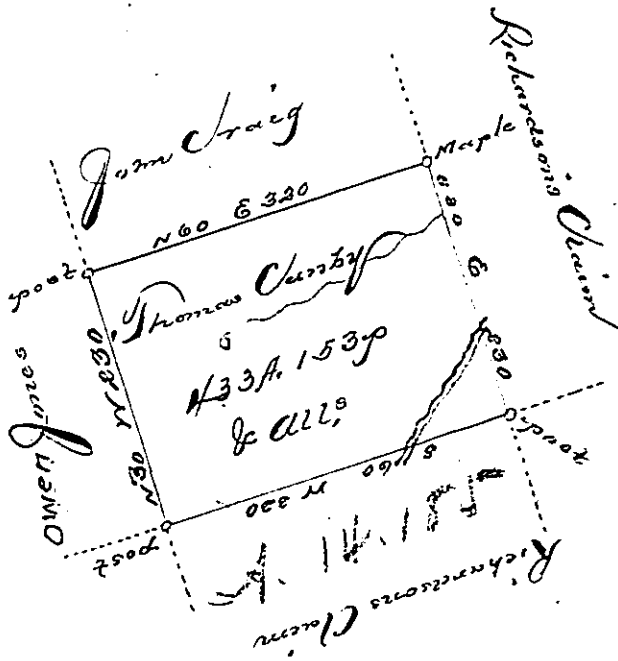 John Craig
Richardsons Claim
Maple
N 60 E 320
post
Thomas
433A. 153p
& All.s
Owen Jones
N 30 W 230
post
S 60 W 320
post
S 30 E 230
Richardsons Claim